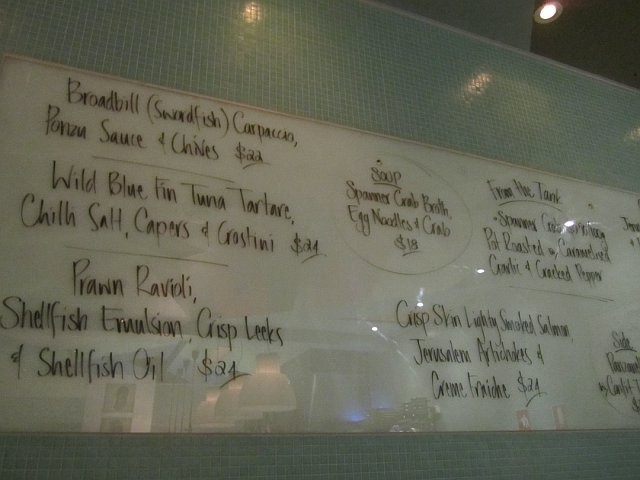 Broadbill (Swordfish) Carpaccio,
Ponzu Sauce & Chives $22
Wild Blue Fin Tuna Tartare,
Chilli Salt, Capers & Crostini $24
Prawn Ravioli,
Shellfish Emulsion, Crisp Leeks
& Shellfish Oil $24
Soup
Spanner Crab Broth,
Egg Noodles & Crab
$18
From the Tank
Spanner Crab
Pot Roasted w Caramelised
Garlic & Cracked Pepper
Crisp Skin Lightly Smoked Salmon,
Jerusalem Artichokes &
Creme Fraiche $24
Side